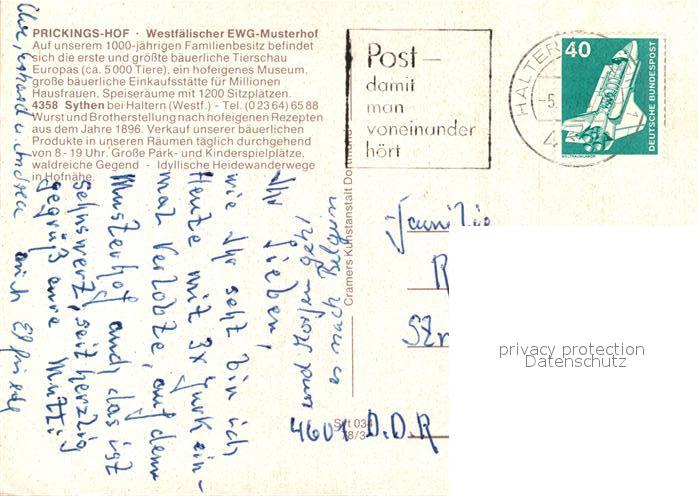 PRICKINGS-HOF · Westfälischer EWG-Musterhof
Auf unserem 1000-jährigen Familienbesitz befindet
sich die erste und größte bäuerliche Tierschau
Europas (ca. 5000 Tiere), ein hofeigenes Museum,
große bäuerliche Einkaufsstätte für Millionen
Hausfrauen, Speiseräume mit 1200 Sitzplätzen.
4358 Sythen bei Haltern (Westf.) - Tel. (02364) 6588
Wurst und Brotherstellung nach hofeigenen Rezepten
aus dem Jahre 1896. Verkauf unserer bäuerlichen
Produkte in unseren Räumen täglich durchgehend
von 8-19 Uhr. Große Park- und Kinderspielplätze,
waldreiche Gegend - Idyllische Heidewanderwege
in Hofnähe.
Post-
damit
man
voneinander
hört
HALTER
-5.
4
40
DEUTSCHE BUNDESPOST
WELTRAUMLABOR
Cramers Kunstanstalt Dortmund
Ihr Lieben,
wie Ihr seht bin ich
Heute mit
mal auf dem
Musterhof auch das ist
sehnswert, seit herzlig
gegrüß eure Mutti
auch Elfriede
und Morgen geht
es nach Belgien
Familie
R
Str
4601 D.D.R
034
78/3
privacy protection
Datenschutz